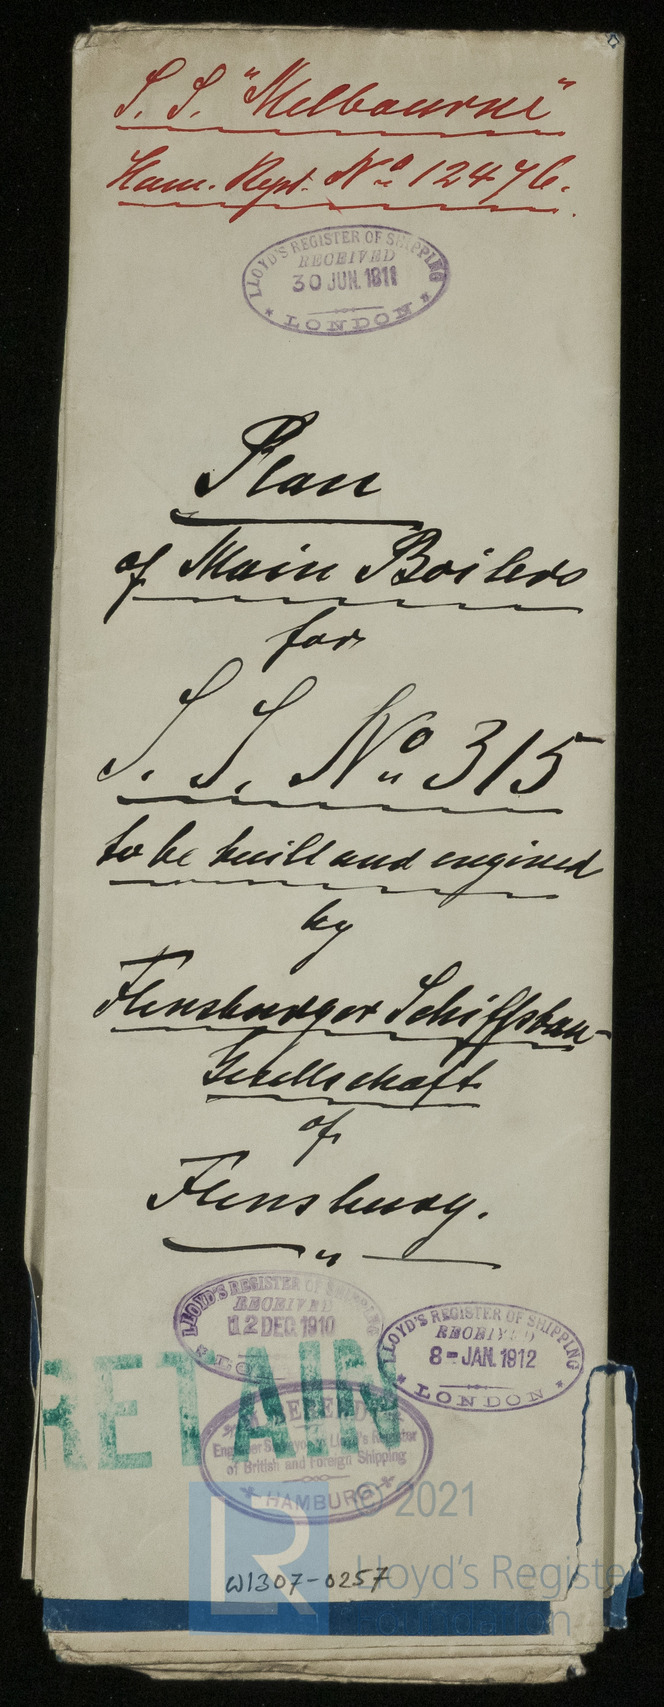 S. S. "Melbourne"
Ham. Rept. No 12476.
LLOYD'S REGISTER OF SHIPPING
RECEIVED
30 JUN. 1911
LONDON
Plan
of Main Boilers
for
S. S. No 315
to be built and engined
by
Flensburger Schiffsbau-
Gesellschaft
of
Flensburg.
LLOYD'S REGISTER OF SHIPPING
RECEIVED
12 DEC. 1910
LLOYD'S REGISTER OF SHIPPING
RECEIVED
8-JAN. 1912
LONDON
RETAIN
Engineer Surveyor to Lloyd's Register
of British and Foreign Shipping
HAMBURG
© 2021
LR
Lloyd's Register
Foundation
W1307-0257